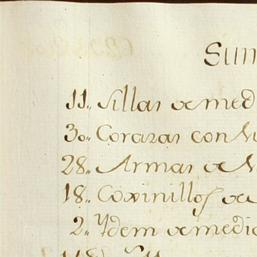 Sum
11,, sillas de med
30,, Corazas con
28,, Armas de
18,, Coxinillos de
2,, Ydem de medio